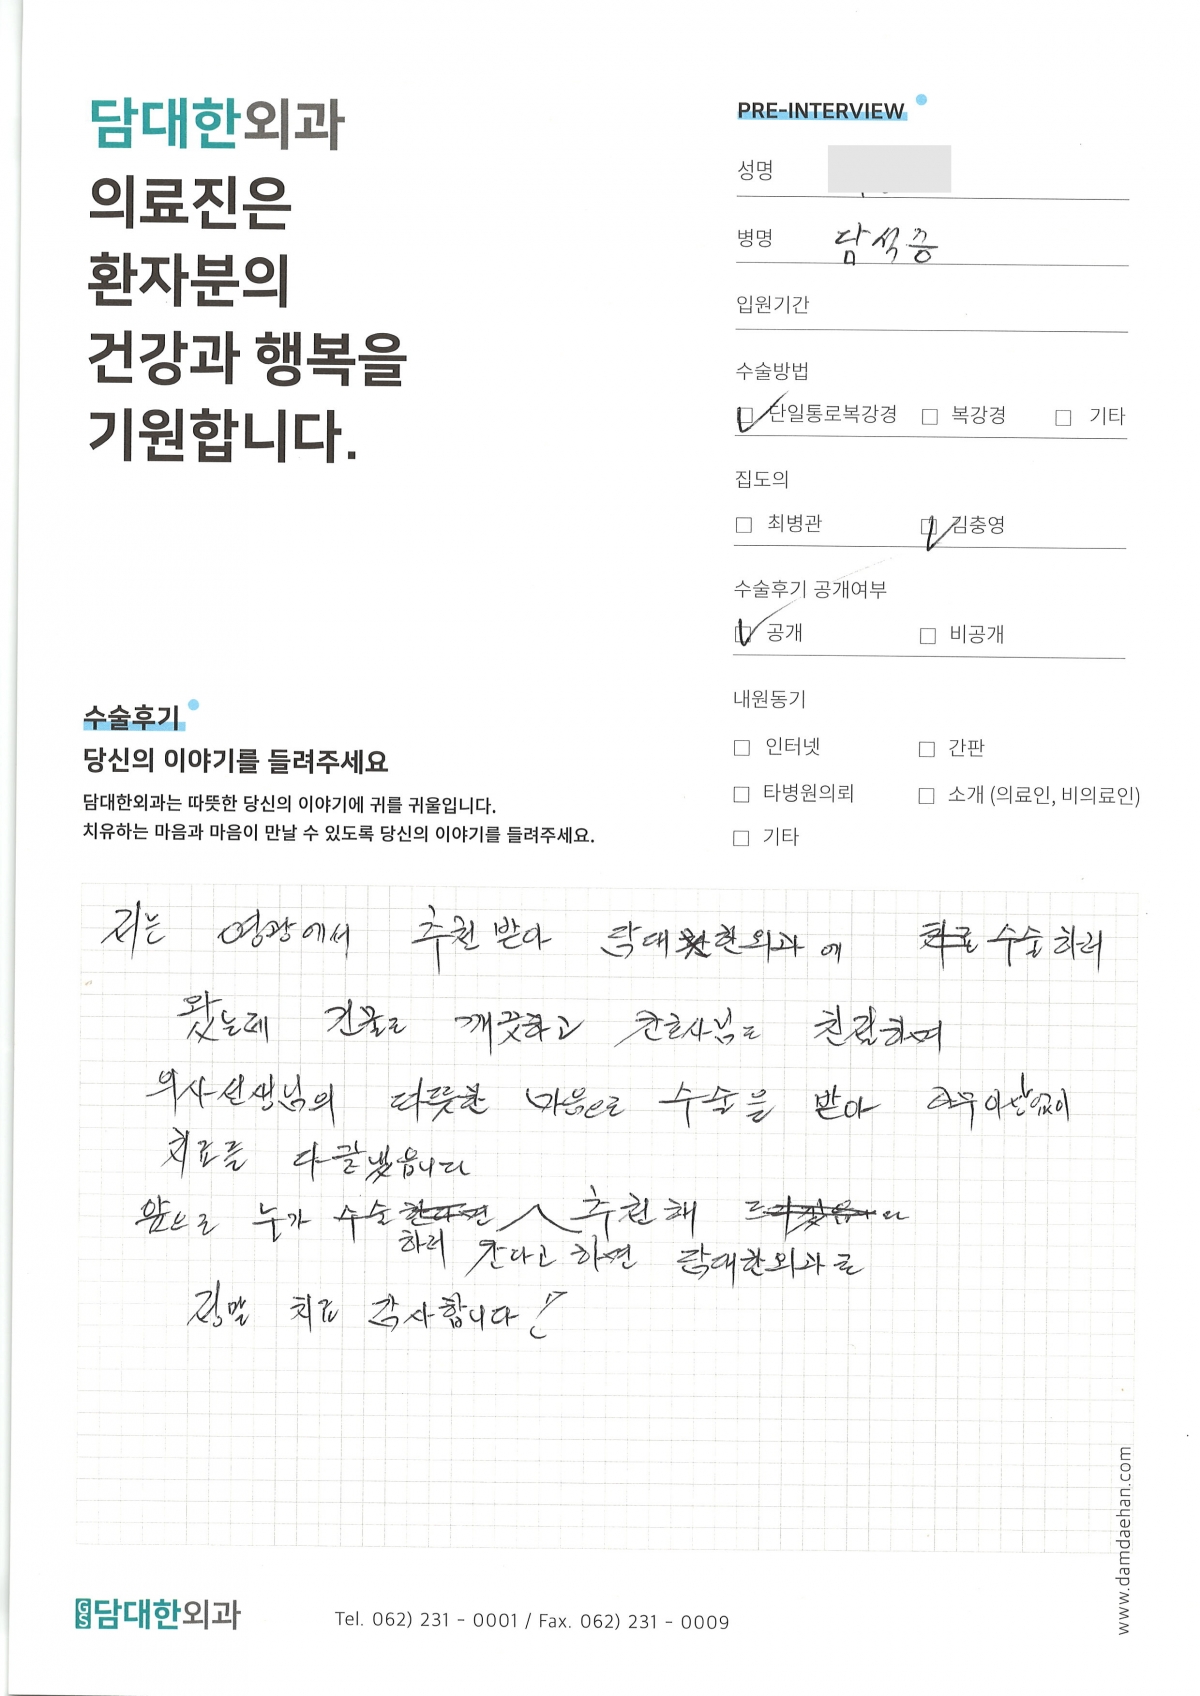 담대한외과
의료진은
환자분의
건강과 행복을
기원합니다.
PRE-INTERVIEW
성명
병명 담석증
입원기간
수술방법
단일통로복강경 복강경 기타
집도의
최병관 김충영
수술후기 공개여부
공개 비공개
내원동기
인터넷 간판
타병원의뢰 소개 (의료인, 비의료인)
기타
수술후기
당신의 이야기를 들려주세요
담대한외과는 따뜻한 당신의 이야기에 귀를 귀울입니다.
치유하는 마음과 마음이 만날 수 있도록 당신의 이야기를 들려주세요.
저는 영광에서 추천 받아 담대한외과에 수술하러
왔는데 건물도 깨끗하고 간호사님도 친절하며
의사선생님의 따뜻한 마음으로 수술을 받아 아무 이상없이
치료를 다 끝냈읍니다
앞으로 누가 수술 추천해
하러 간다고 하면 담대한외과를
정말 치료 감사합니다!
GS 담대한외과
Tel. 062) 231 - 0001 / Fax. 062) 231 - 0009
www.damdaehan.com